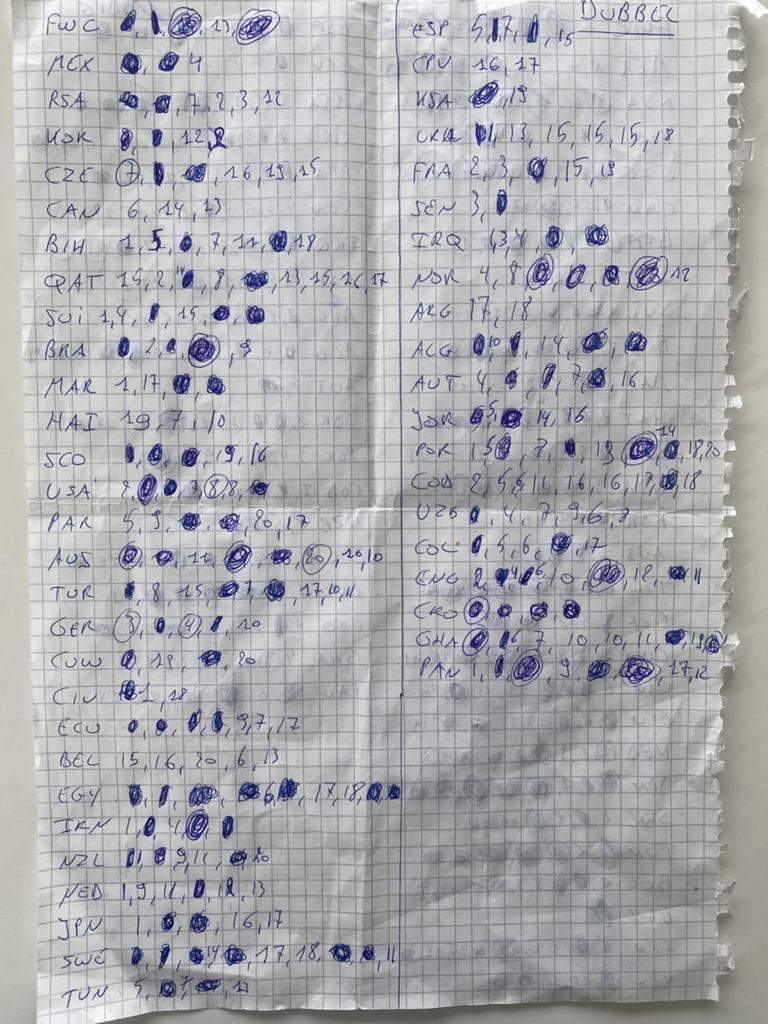 FWC 13
MEX 4
RSA 7, 2, 3, 12
KOR 12, 2
CZE 7, 16, 19, 15
CAN 6, 14, 13
BIH 1, 5, 7, 11, 18
QAT 15, 2, 8, 13, 15, 16, 17
SUI 1, 4, 15
BRA 2, 9
MAR 1, 17
HAI 19, 7, 10
SCO 19, 16
USA 2, 7, 8, 8
PAR 5, 9, 20, 17
AUS 11, 20, 16, 10
TUR 8, 15, 7, 17, 10, 11
GER 3, 4, 20
CUW 19, 20
CIV 1, 18
ECU 9, 7, 17
BEL 15, 16, 20, 6, 13
EGY 6, 17, 18
IRN 1, 4
NZL 9, 11, 20
NED 1, 9, 11, 12, 13
JPN 1, 16, 17
SWE 14, 17, 18, 11
TUN 5, 7, 13
DUBBEL
ESP 5, 7, 15
CPV 16, 17
KSA 19
URU 11, 13, 15, 15, 15, 18
FRA 2, 3, 15, 19
SEN 3
IRQ 1, 3, 4
NOR 4, 8, 12
ARG 17, 18
ALG 10, 14
AUT 4, 7, 16
JOR 5, 14, 16
POR 1, 5, 7, 19, 14, 18, 20
COD 2, 5, 5, 11, 16, 16, 17, 18
UZB 4, 7, 9, 6, 8
COL 5, 6, 17
ENG 2, 4, 6, 10, 12, 11
CRO
GHA 6, 7, 10, 10, 11, 19
PAN 1, 9, 17, 12